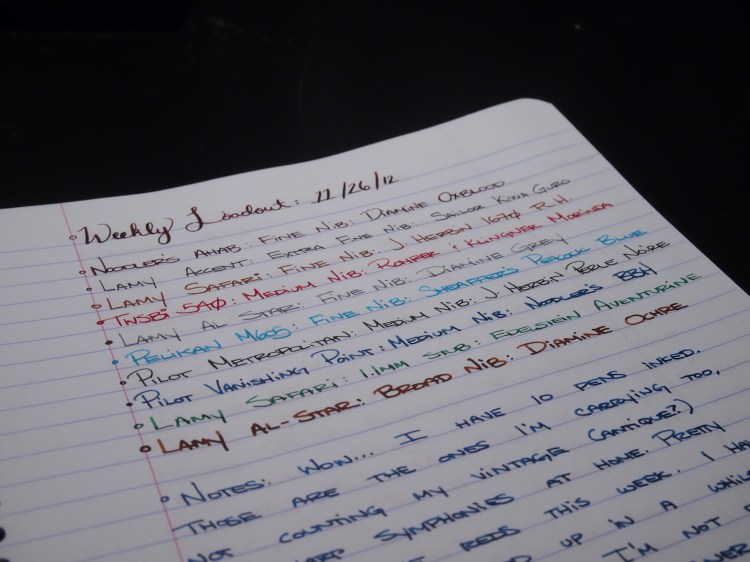 Weekly Loadout: 11/26/12
Noodler's Ahab: Fine Nib: Diamine Oxblood
Lamy Accent: Extra Fine Nib: Sailor Kiwa Guro
Lamy Safari: Fine Nib: J. Herbin 1670 R.H.
TWSBI 540: Medium Nib: Rohrer & Klingner Morinda
Lamy Al Star: Fine Nib: Diamine Grey
Pelikan M605: Fine Nib: Sheaffer's Peacock Blue
Pilot Metropolitan: Medium Nib: J. Herbin Perle Noire
Pilot Vanishing Point: Medium Nib: Noodler's BBH
Lamy Safari: 1.1mm Stub: Edelstein Aventurine
Lamy Al-Star: Broad Nib: Diamine Ochre
Notes: Wow... I have 10 pens inked.
Those are the ones I'm carrying too,
not counting my vintage (antique?)
symphonies at home. Pretty
reds this week. I
up in a
I'm not